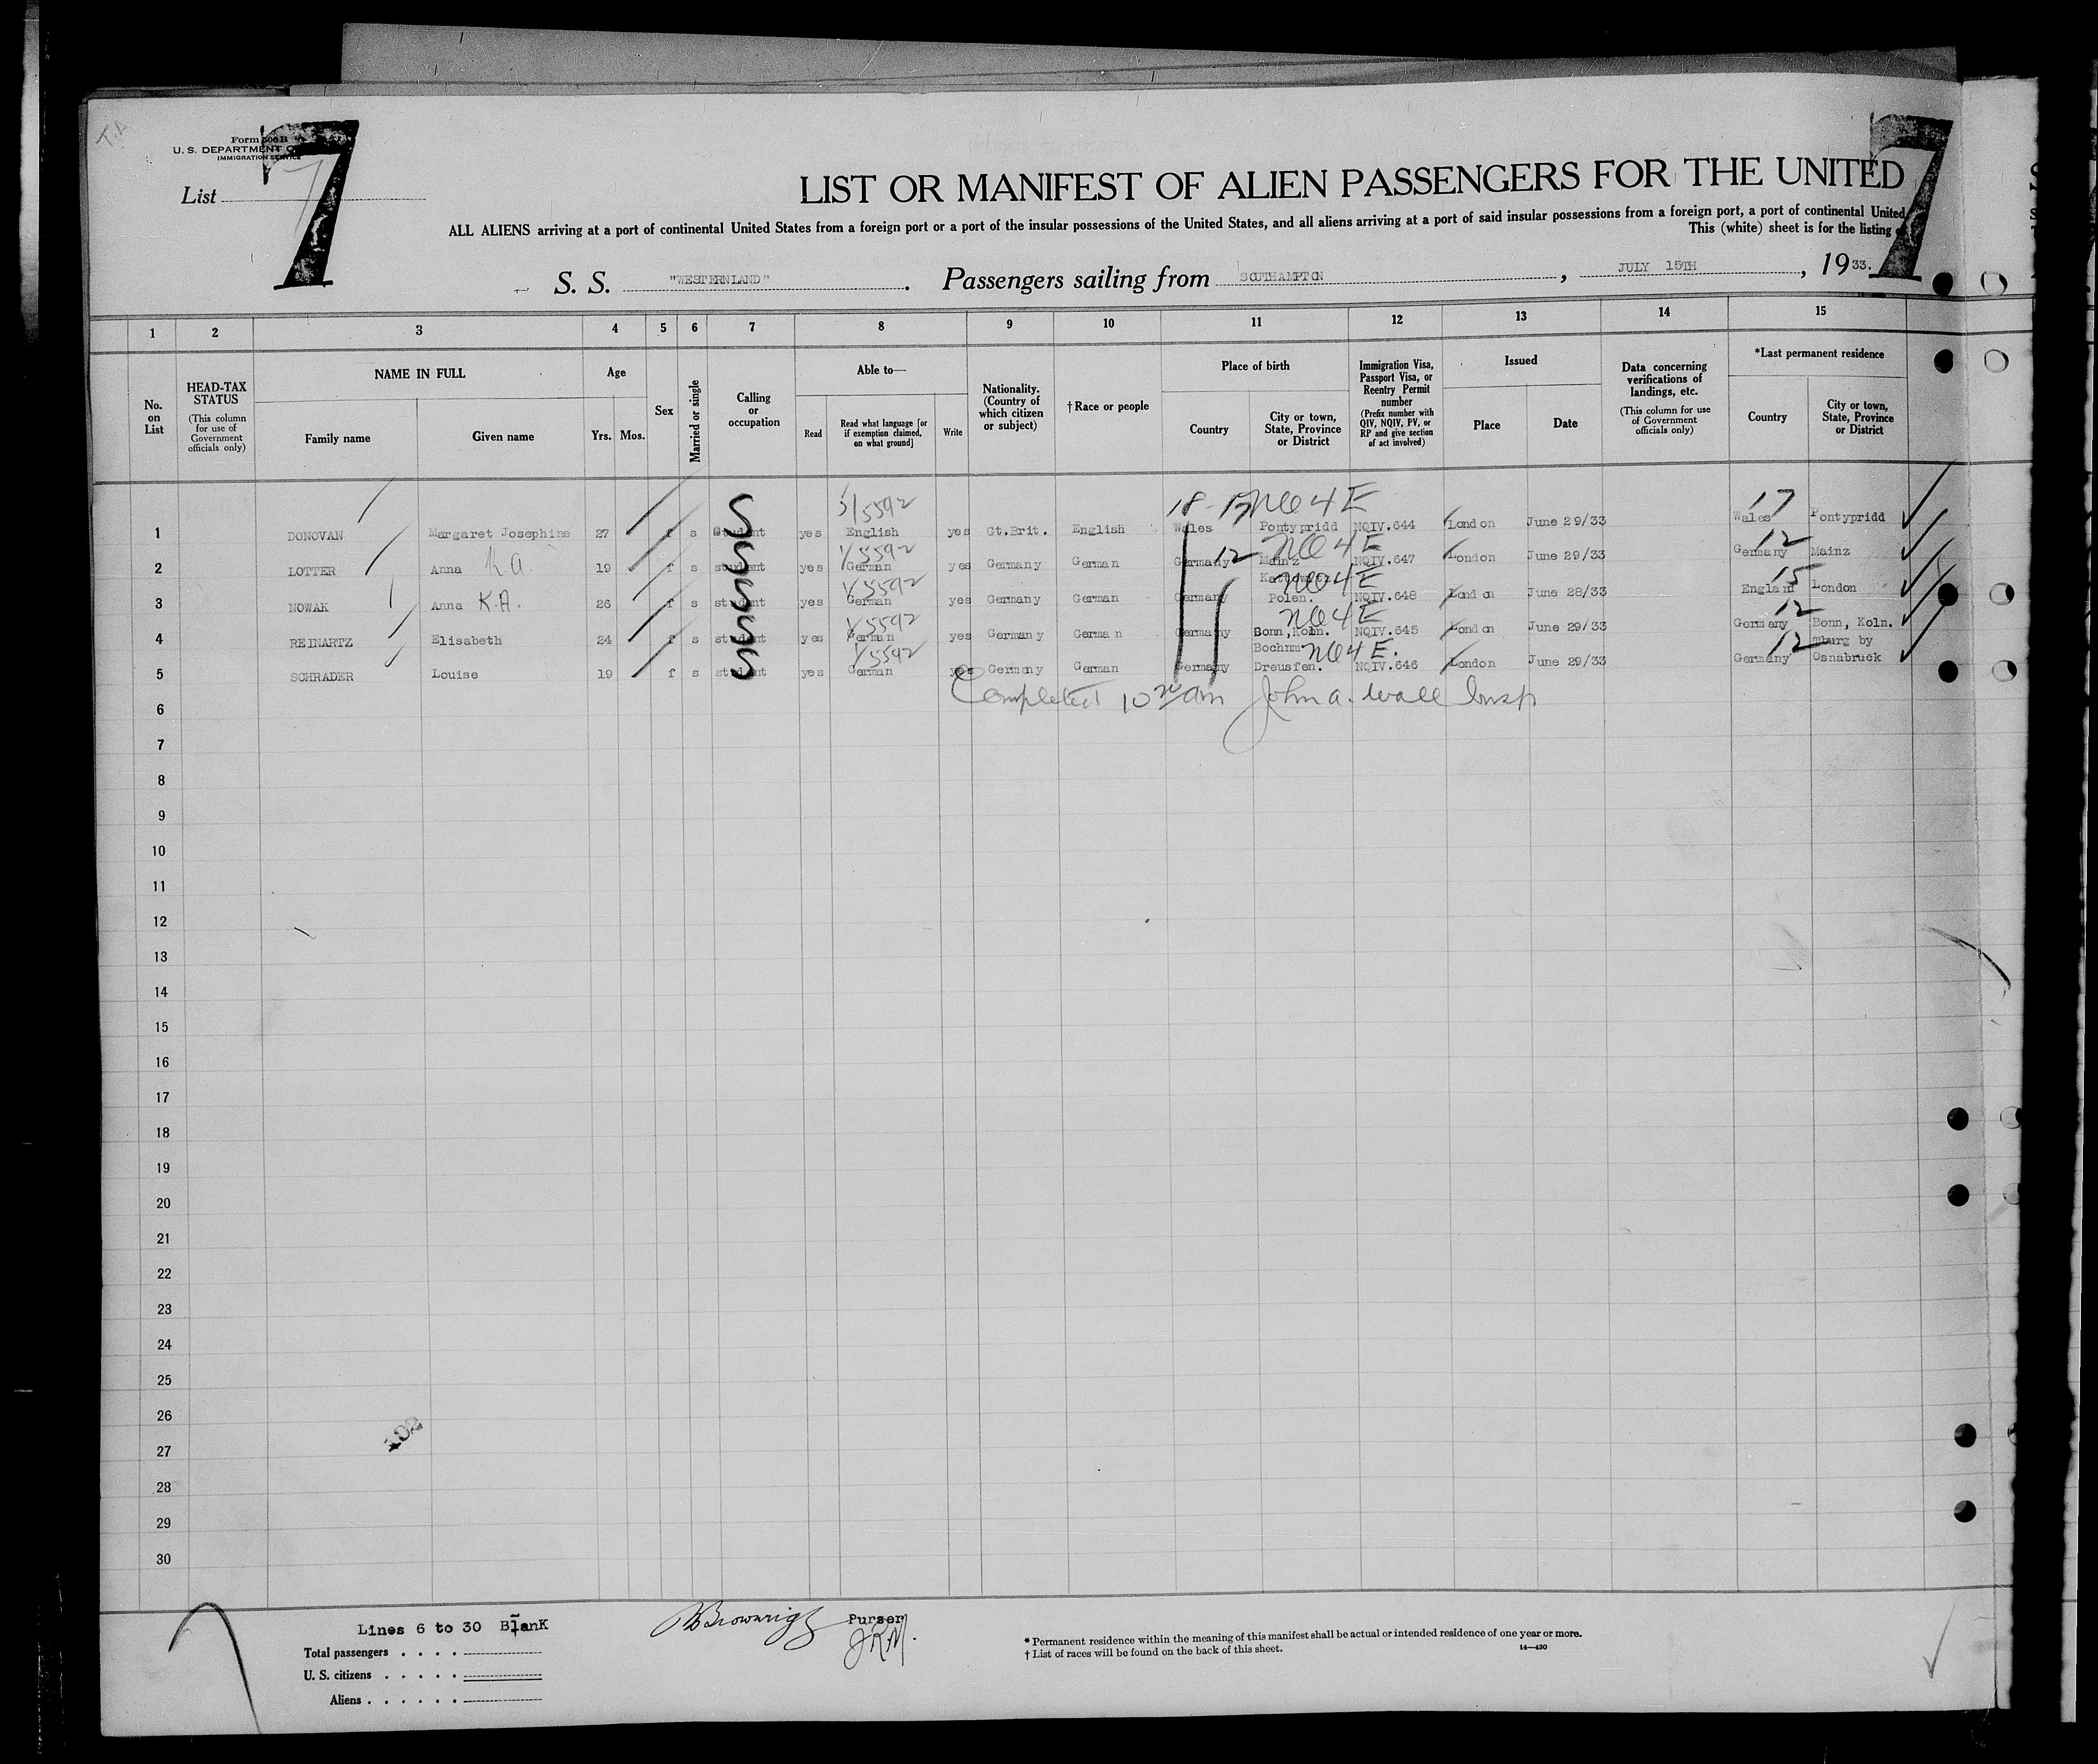 Form 500 B
U. S. DEPARTMENT O
IMMIGRATION SERVICE
List 7
7
7
LIST OR MANIFEST OF ALIEN PASSENGERS FOR THE UNITED
ALL ALIENS arriving at a port of continental United States from a foreign port or a port of the insular possessions of the United States, and all aliens arriving at a port of said insular possessions from a foreign port, a port of continental United
This (white) sheet is for the listing
S. S. "WESTERNLAND". Passengers sailing from SOUTHAMPTON, JULY 15TH, 1933.
1 2 3 4 5 6 7 8 9 10 11 12 13 14 15
No. on List
HEAD-TAX STATUS (This column for use of Government officials only)
NAME IN FULL Family name Given name
Age Yrs. Mos.
Sex
Married or single
Calling or occupation
Able to— Read Read what language [or if exemption claimed, on what ground] Write
Nationality. (Country of which citizen or subject)
†Race or people
Place of birth Country City or town, State, Province or District
Immigration Visa, Passport Visa, or Reentry Permit number (Prefix number with QIV, NQIV, PV, or RP and give section of act involved)
Issued Place Date
Data concerning verifications of landings, etc. (This column for use of Government officials only)
*Last permanent residence Country City or town, State, Province or District
5592 18 NO 4 E 17
1 DONOVAN Margaret Josephine 27 f s Student yes English yes Gt.Brit. English Wales Pontypridd NQIV.644 London June 29/33 Wales Pontypridd
5592 12 NO 4 E 12
2 LOTTER Anna K A 19 f s student yes German yes Germany German Germany Mainz NQIV.647 London June 29/33 Germany Mainz
5592 NO 4 E 15
3 NOWAK Anna K.A. 26 f s student yes German yes Germany German Germany Polen. NQIV.648 London June 28/33 England London
5592 NO 4 E 12
4 REINARTZ Elisabeth 24 f s student yes German yes Germany German Germany Bonn, Koln. NQIV.645 London June 29/33 Germany Bonn, Koln.
5592 NO 4 E. 12
5 SCHRADER Louise 19 f s student yes German yes Germany German Germany Dreusfen. NQIV.646 London June 29/33 Germany burg by Osnabruck
Completed 10 am John A. Wall Insp
6
7
8
9
10
11
12
13
14
15
16
17
18
19
20
21
22
23
24
25
26
102
27
28
29
30
Lines 6 to 30 Blank
Brownrigg Purser
J.R.M.
Total passengers . . . .
U. S. citizens . . . . .
Aliens . . . . . .
* Permanent residence within the meaning of this manifest shall be actual or intended residence of one year or more.
† List of races will be found on the back of this sheet.
14—430